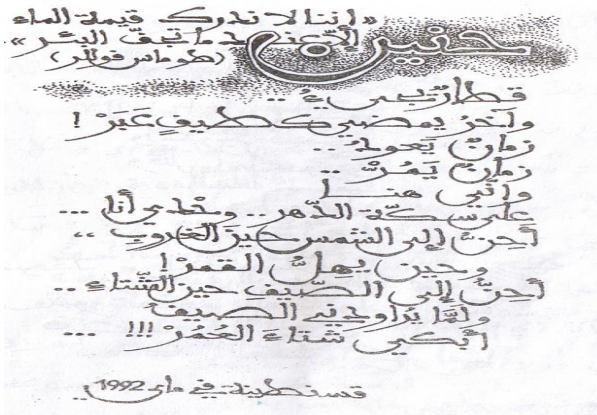 «إننا لا ندرك قيمة الماء
إلا عندما تجفّ البئر»
(طوماس فوللر)
حنين
قطارٌ يجيءُ ..
وآخرُ يمضي كطيفٍ عَبَرْ !
زمانٌ يَعودُ ..
زمانٌ يَمُرُّ ..
وإنّي هنا
على سكّة الدّهر .. وحدي أنا ...
أحِنُّ إلى الشمس حينَ الغروبِ ،،
وحين يهلّ القمرْ !
أحِنُّ إلى الصّيف حين الشّتاء ..
ولمّا يراودني الصيف
أبكي شتاءَ العُمُرْ !!! ...
قسنطينة في ماي 1992